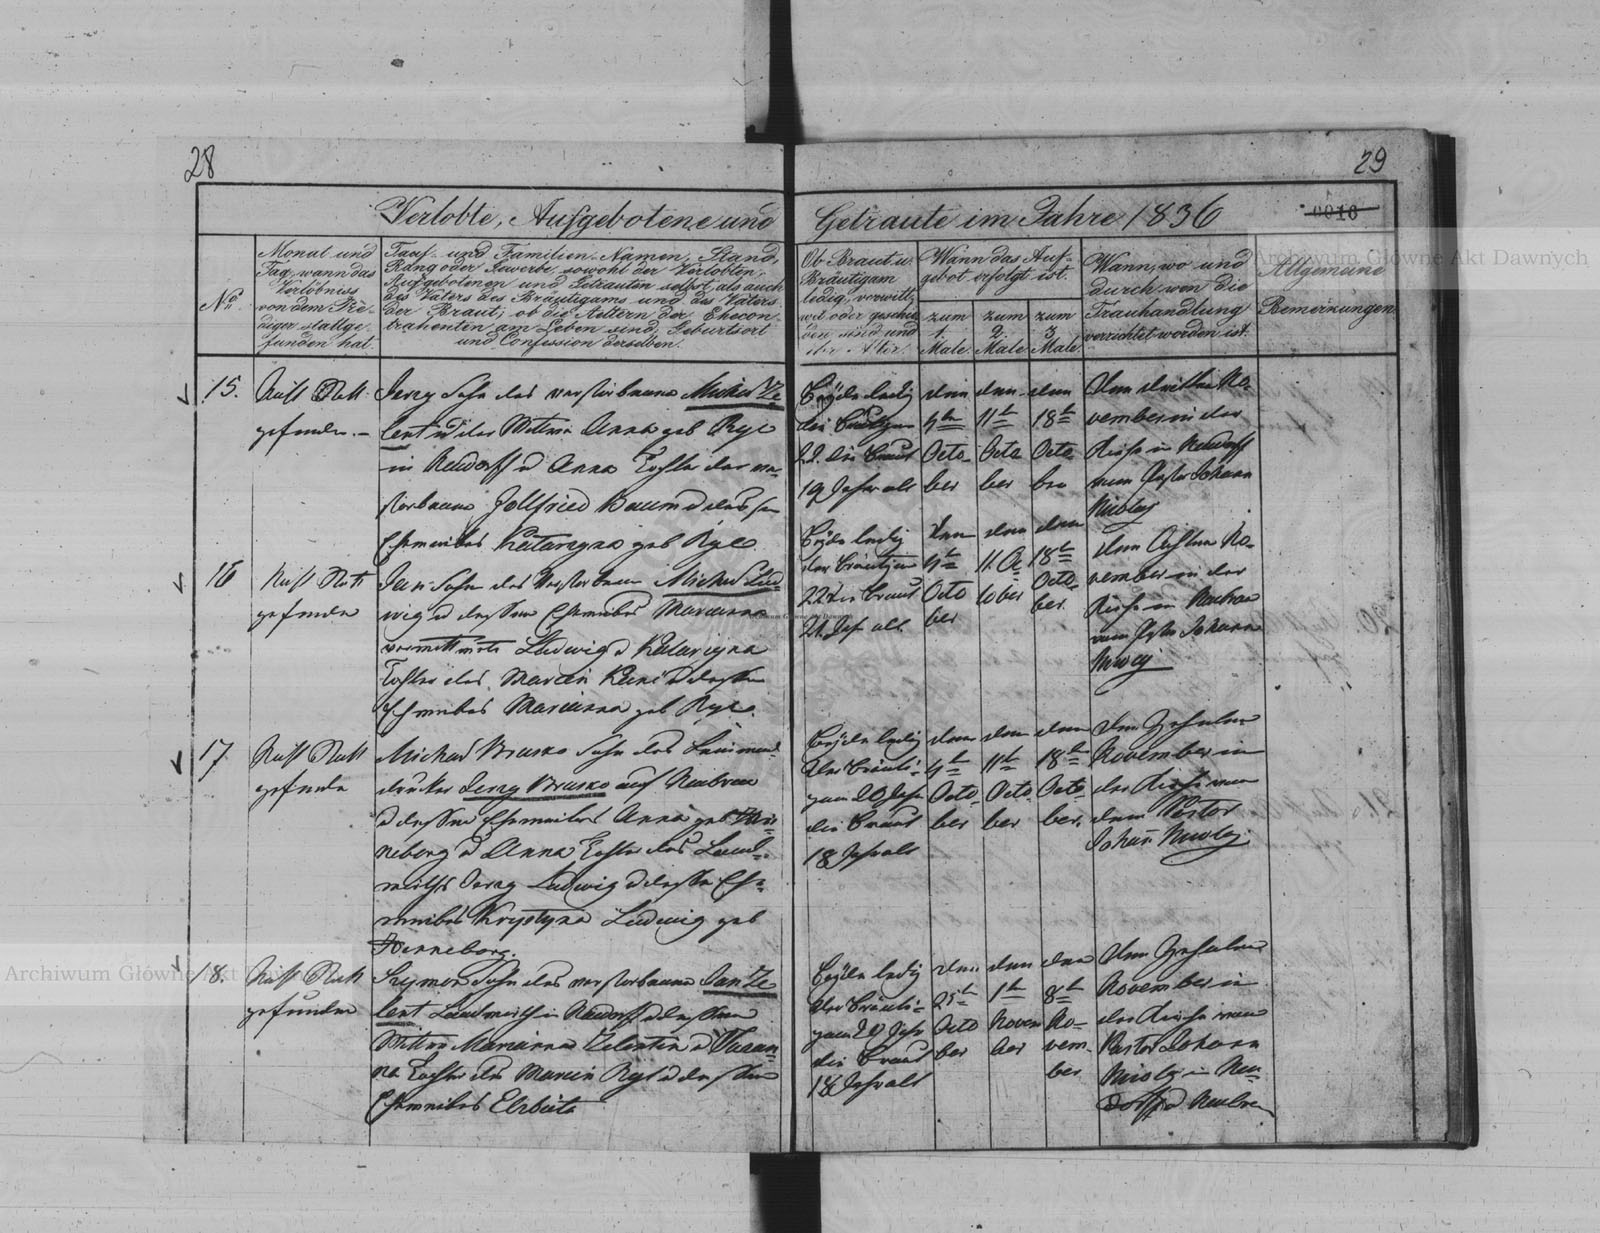 28
29
Verlobte, Aufgebotene und
Getraute im Jahre 1836
0016
No.
Monat und
Tag, wann das
Verlöbniss
von dem Pre-
diger stattge-
funden hat.
Tauf- und Familien-Namen, Stand,
Rang oder Gewerbe sowohl der Verlobten,
Aufgebotenen und Getrauten selbst, als auch
des Vaters des Bräutigams und des Vaters
der Braut; ob die Aeltern der Ehecon-
trahenten am Leben sind, Geburtsort
und Confession derselben.
Ob Braut u.
Bräutigam
ledig, verwitt-
wet oder geschie-
den sind und
ihr Alter.
Wann das Auf-
gebot erfolgt ist.
zum
1.
Male.
zum
2.
Male.
zum
3.
Male.
Wann, wo und
durch wen die
Trauhandlung
verrichtet worden ist.
Allgemeine
Bemerkungen.
15.
Nicht Statt
gefunden.
Jerzy Sohn des verstorbenen Michał Ze-
lent u der Wittwe Anna geb Ryc
in Neudorff u Anna Tochter des ver-
storbenen Gottfried Baum u dessen
Eheweibes Katarzyna geb Ryc.
Beyde ledig
der Bräutigam
22. die Braut
19 Jahr alt
den
4te
Octo-
ber
den
11te
Octo
ber
den
18te
Octo
ber
Den dritten No-
vember in der
Kirche in Neudorff
vom Pastor Johann
16
Nicht Statt
gefunden
Jan Sohn des Verstorbenen Michał Lud-
wig u dessen Eheweibes Marianna
Ludwig u Katarzyna
Tochter des Marcin u dessen
Eheweibes Marianna geb Ryc.
Beyde ledig
der Bräutigam
22 die Braut
21. Jahr alt.
den
4te
Octo
ber
den
11. Oc
tober
den
18te
Octo-
ber.
Den Achten No-
vember in der
Kirche in
vom Pastor Johann
17
Nicht Statt
gefunden
Michał Brusko Sohn des
Jerzy Brusko auf Neubrow
u dessen Eheweibes Anna geb Hen-
neborg u Anna Tochter des Land-
wirths Jerzy Ludwig u dessen Ehe-
weibes Krystyna Ludwig geb
Henneborg.
Beyde ledig
der Bräuti-
gam 20 Jahr
die Braut
18 Jahr alt
den
4te
Octo-
ber
den
11te
Octo
ber
den
18te
Octo-
ber.
Den Zehnten
November in
der Kirche vom
dem Pastor
Johann
18.
Nicht Statt
gefunden
Szymon Sohn des verstorbenen Jan Ze-
lent Landwirth in Neudorff u dessen
Wittwe Marianna Zelentin u Zuzan-
na Tochter des Marcin Ryc u dessen
Eheweibes Elzbieta
Beyde ledig
der Bräuti-
gam 20 Jahr
die Braut
18 Jahr alt
den
25te
Octo
ber
den
1te
Novem
ber
den
8te
No-
vem-
ber
Den Zehnten
November in
der Kirche vom
Pastor Johann
in Neu-
dorff u Neubrow
Archiwum Główne Akt Dawnych
Archiwum Główne Akt Dawnych